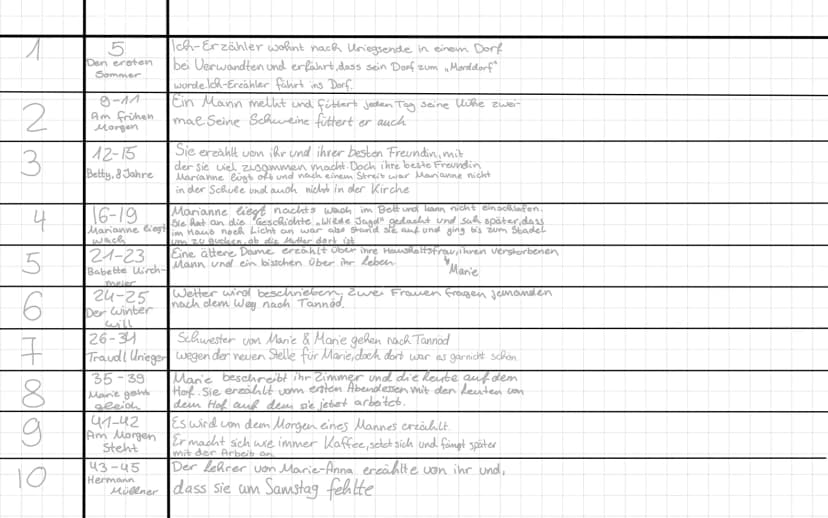 1
5
Den ersten
Sommer
Ich-Erzähler wohnt nach Kriegsende in einem Dorf
bei Verwandten und erfährt, dass sein Dorf zum „Morddorf"
wurde. Ich-Erzähler fährt ins Dorf.
2
8-11
Am frühen
Morgen
Ein Mann melkt und füttert jeden Tag seine Kühe zwei-
mal. Seine Schweine füttert er auch
3
12-15
Betty, 8 Jahre
Sie erzählt von ihr und ihrer besten Freundin, mit
der sie viel zusammen macht. Doch ihre beste Freundin
Marianne lügt oft und nach einem Streit war Marianne nicht
in der Schule und auch nicht in der Kirche
4
16-19
Marianne liegt
wach
Marianne liegt nachts wach im Bett und kann nicht einschlafen.
Sie hat an die Geschichte „Wilde Jagd" gedacht und sah später, dass
im Haus noch Licht an war also stand sie auf und ging bis zum Stadel
um zu gucken, ob die Mutter dort ist
5
21-23
Babette Kirch-
meier
Eine ältere Dame erzählt über ihre Haushaltsfrau, ihren verstorbenen
Mann und ein bisschen über ihr Leben.
Marie
6
24-25
Der Winter
will
Wetter wird beschrieben, zwei Frauen fragen jemanden
nach dem Weg nach Tannöd.
7
26-34
Traudl Krieger
Schwester von Marie & Marie gehen nach Tannöd
wegen der neuen Stelle für Marie, doch dort war es garnicht schön.
8
35-39
Marie geht
gleich
Marie beschreibt ihr Zimmer und die Leute auf dem
Hof. Sie erzählt vom ersten Abendessen mit den Leuten von
dem Hof auf dem sie jetzt arbeitet.
9
41-42
Am Morgen
steht
Es wird von dem Morgen eines Mannes erzählt.
Er macht sich wie immer Kaffee, setzt sich und fängt später
mit der Arbeit an.
10
43-45
Hermann
Müllner
Der Lehrer von Marie-Anna erzählte von ihr und,
dass sie am Samstag fehlte